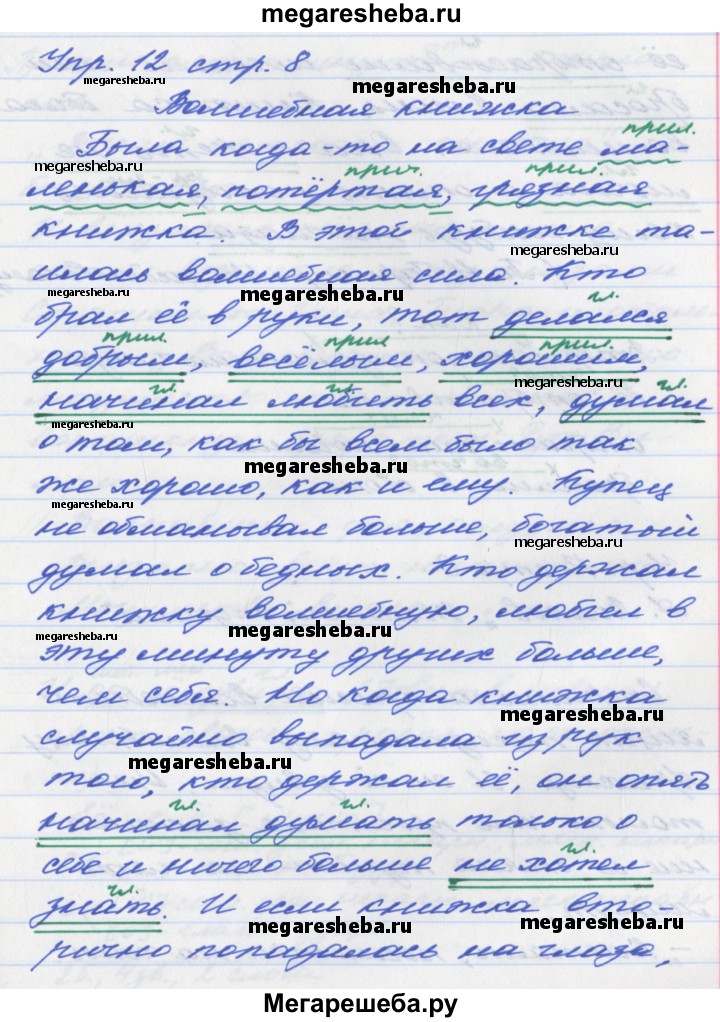 megaresheba.ru
Упр. 12 стр. 8
megaresheba.ru
megaresheba.ru
Волшебная книжка
прил.
Была когда-то на свете ма-
megaresheba.ru
прич. прил.
ленькая, потёртая, грязная
книжка. В этой книжке та-
megaresheba.ru
илась волшебная сила. Кто
megaresheba.ru
megaresheba.ru
гл.
брал её в руки, тот делался
прил. прил прил.
добрым, весёлым, хорошим,
megaresheba.ru
гл. гл. гл.
начинал любить всех, думал
megaresheba.ru
о том, как бы всем было так
megaresheba.ru
же хорошо, как и ему. Купец
megaresheba.ru
не обманывал больше, богатый
megaresheba.ru
думал о бедных. Кто держал
книжку волшебную, любил в
megaresheba.ru
megaresheba.ru
эту минуту других больше,
чем себя. Но когда книжка
megaresheba.ru
случайно выпадала из рук
megaresheba.ru
того, кто держал её, он опять
гл. гл.
начинал думать только о
гл.
себе и ничего больше не хотел
гл.
знать. И если книжка вто-
megaresheba.ru
megaresheba.ru
рично попадалась на глаза,
megaresheba.ru
Мегарешеба.ру